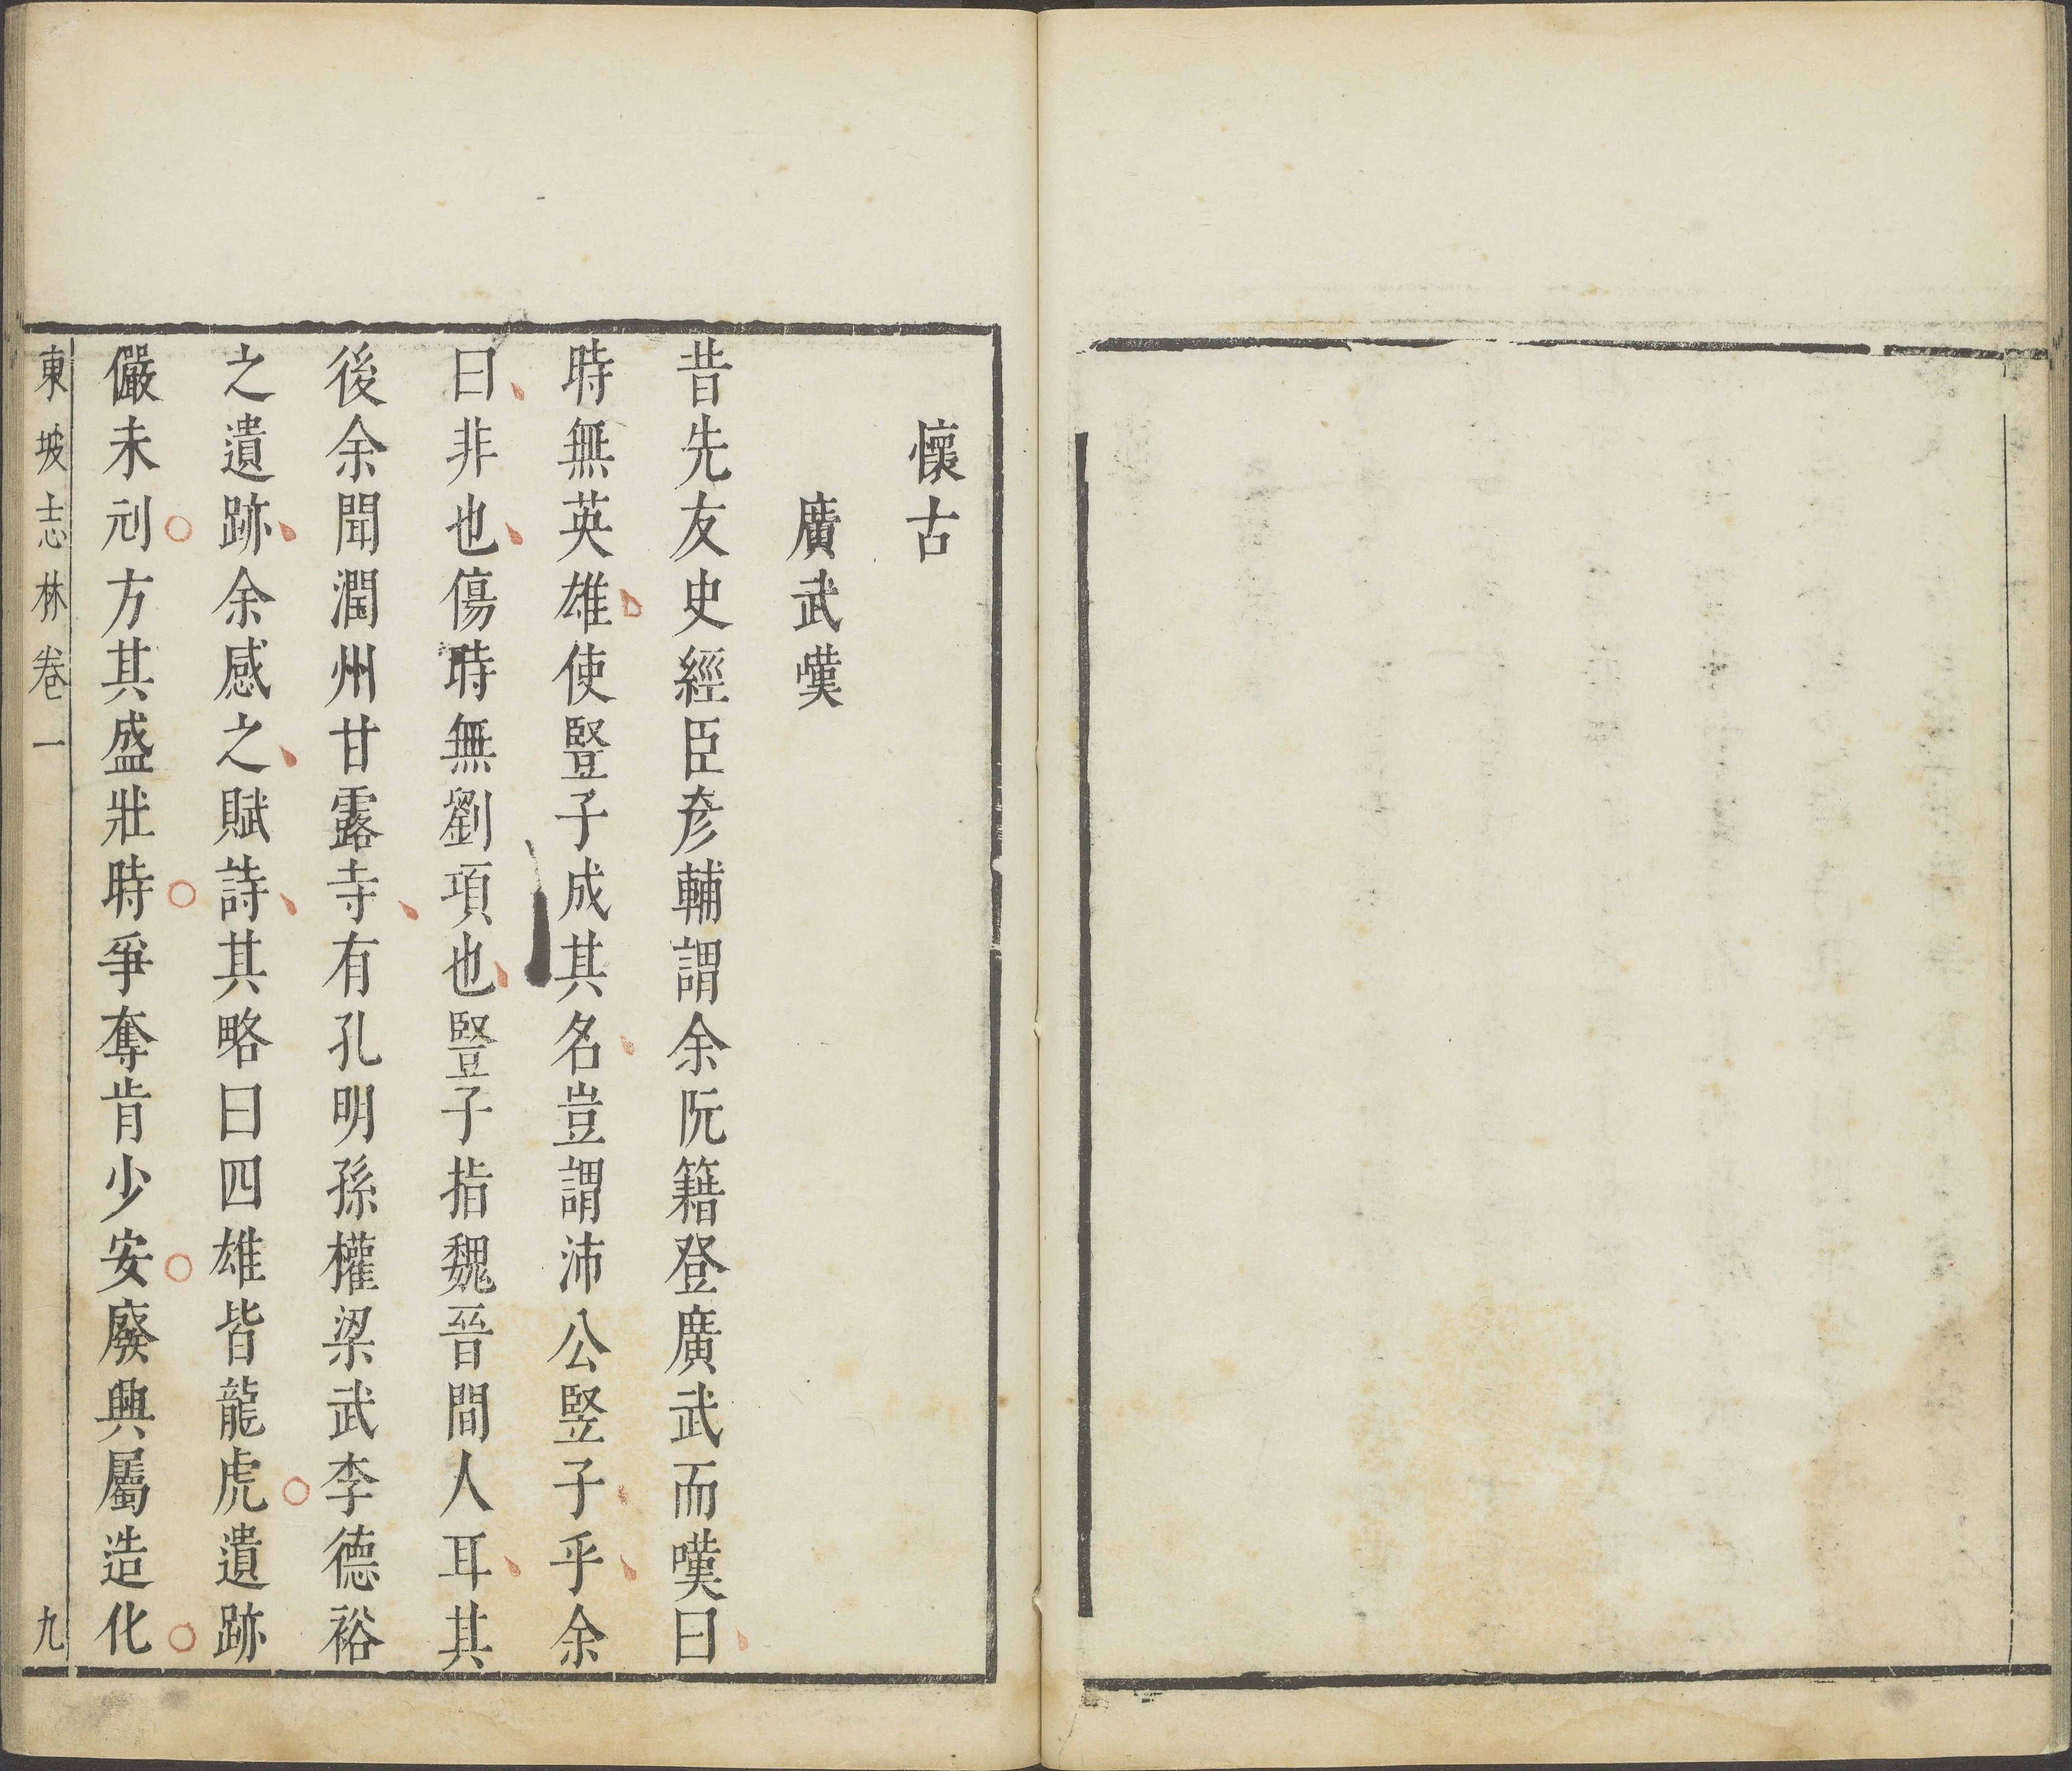 懷古
廣武嘆
昔先友史經臣彥輔謂余阮籍登廣武而嘆曰
時無英雄使豎子成其名豈謂沛公竪子乎余
曰非也傷時無劉項也豎子指魏晉間人耳其
後余聞潤州甘露寺有孔明孫權梁武李德裕
之遺跡余感之賦詩其略曰四雄皆龍虎遺跡
儼未刓方其盛壯時爭奪肯少安廢興屬造化
東坡志林卷一
九